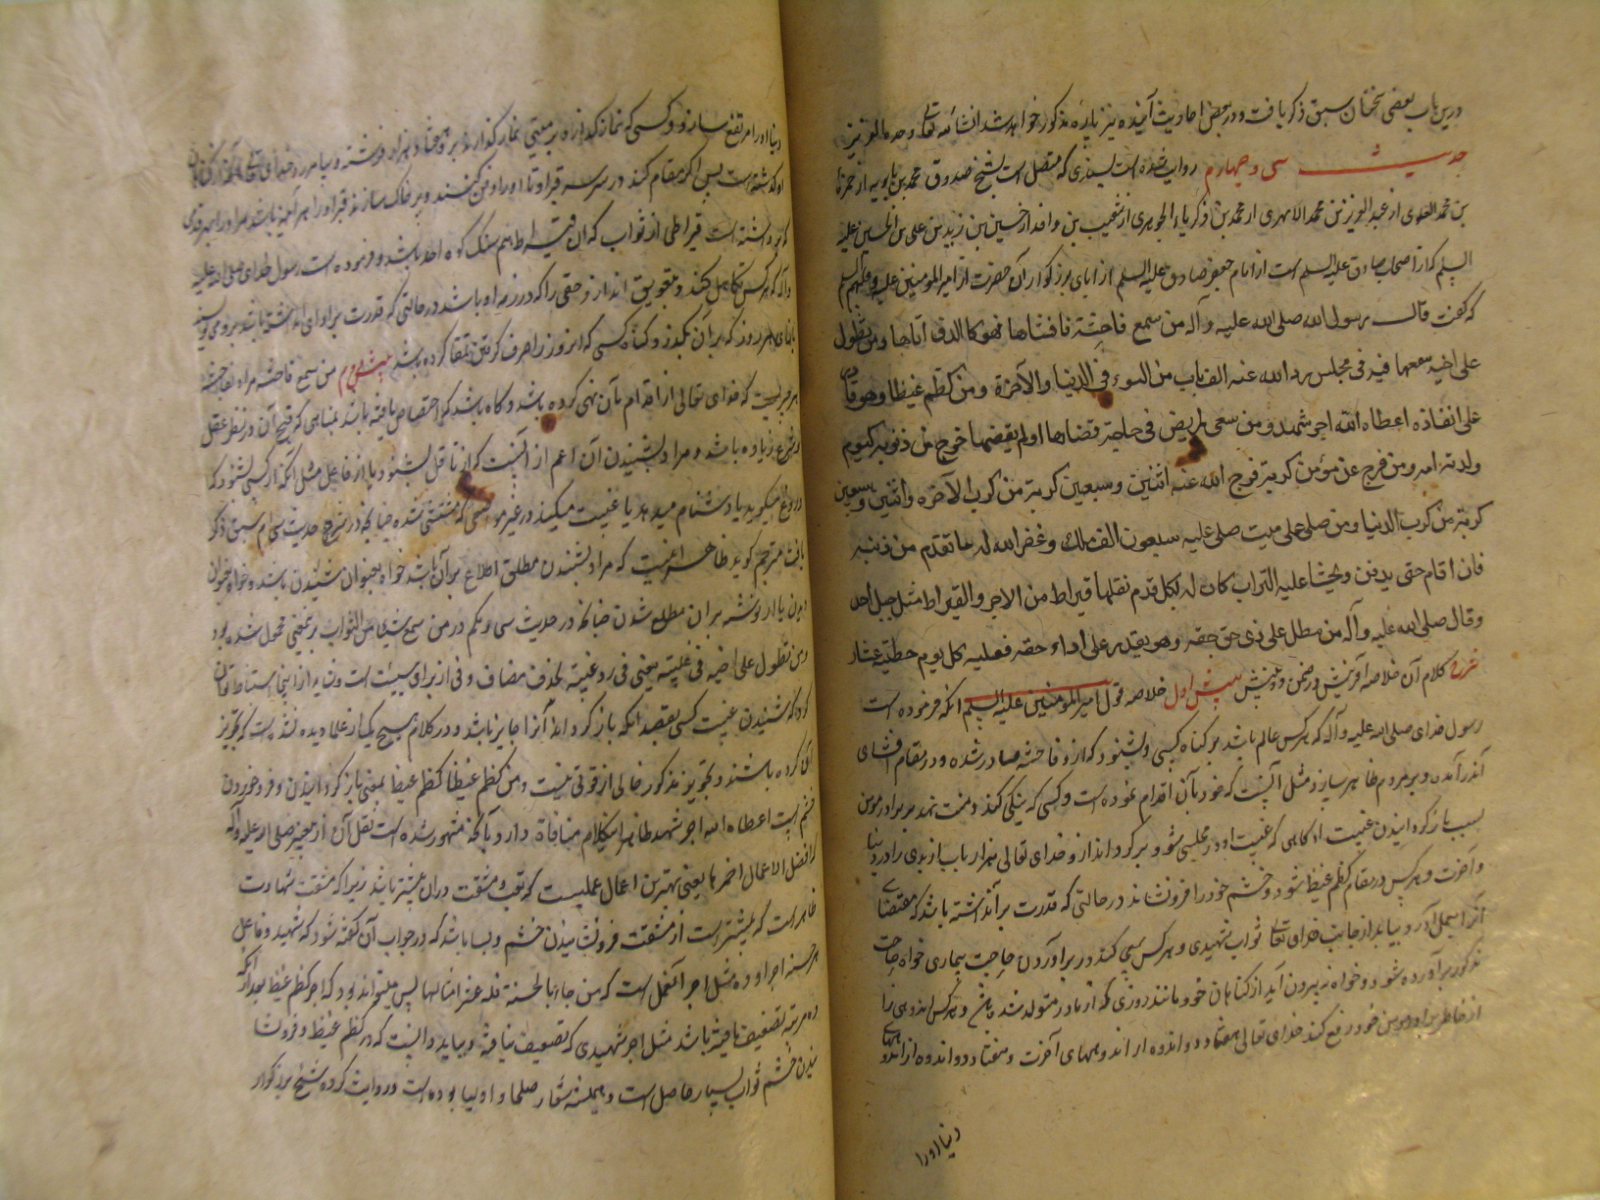 درین باب بعضی سخنان سبق ذکر یافت و در بعض احادیث آینده نیز پاره مذکور خواهد شد انشاء الله تعالی وحده العزیز
حدیث سی و چهارم روایت شده است بسندی که متصل است بشیخ صدوق محمد بن بابویه از حمزة
بن محمد العلوی از عبد العزیز بن محمد الابهری از محمد بن زکریاء الجوهری از شعیب بن واقد از حسین بن زید بن علی بن الحسین علیه
السلم که از اصحاب صادق علیه السلم است از امام جعفر صادق علیه السلم از ابای بزرگوار آن حضرت از امیر المومنین علیه وعلیهم السلم
که گفت قال رسول الله صلی الله علیه وآله من سمع فاحشة فافشاها فهو کالذی اتاها ومن تطول
علی اخیه سمعها فیه فی مجلس رد الله عنه الف باب من السوء فی الدنیا والآخرة ومن کظم غیظا وهو قادر
علی انفاذه اعطاه الله اجر شهید ومن سعی لمریض فی حاجة قضاها او لم یقضها خرج من ذنوبه کیوم
ولدته امه ومن فرج عن مؤمن کربة فرج الله عنه اثنتین وسبعین کربة من کرب الآخره واثنتین وسبعین
کربة من کرب الدنیا ومن صلی علی میت صلی علیه سبعون الف ملک وغفر الله له ما تقدم من ذنبه
فان اقام حتی یدفن ویحثا علیه التراب کان له بکل قدم نقلها قیراط من الاجر والقیراط مثل جبل احد
وقال صلی الله علیه وآله من مطل علی ذی حق حقه وهو یقدر علی اداء حقه فعلیه کل یوم خطیئة عشار
شرح کلام آن خلاصه آفرینش در ضمن دو بینش بینش اول خلاصه قول امیر المومنین علیه السلم آنکه فرموده است
رسول خدای صلی الله علیه وآله که هرکس عالم باشد بر گناه کسی و بشنود که ازو فاحشه صادر شده و در مقام افشای
آن در آمده و بر مردم ظاهر سازد مثل آنست که خود بآن اقدام نموده است و کسی که نیکی کند و منت نهد بر برادر مومن
بسبب باز گردانیدن غیبت او گاهی که غیبت او در مجلسی شنود بر گرداند ازو خدای تعالی هزار باب از بدی را در دنیا
و آخرت و هرکس در مقام کظم غیظ شود و خشم خود را فرو نشاند در حالتی که قدرت بر آن داشته باشد که مقتضای
آنرا بعمل آورد بیابد از جانب خدای تعالی ثواب شهیدی و هرکس سعی کند در بر آوردن حاجت بیماری خواه حاجت
مذکور برآورده شود و خواه نه بیرون آید از گناهان خود مانند روزی که از مادر متولد شده باشد و هرکس اندوهی را
از خاطر برادر مومن خود رفع کند خدای تعالی هفتاد و دو اندوه از اندوههای آخرت و هفتاد و دو اندوه از اندوههای
دنیا اورا
دنیا اورا مرتفع سازد و کسی که نماز گذارد بر میتی نماز گذارند برو هفتاد هزار فرشته و بیامرزد خدای تعالی
او گذشته است پس اگر مقام کند در سر قبر او تا او را دفن کنند و بر خاک سازند قبر او را هر آینه باشد مر او را بهر قدمی
که برداشته است قیراطی از ثواب که آن قیراط هم سنگ کوه احد باشد و فرموده است رسول خدای صلی الله علیه
وآله که هرکس تکاهل کند و بتعویق اندازد حقی را که در ذمه او باشد در حالتی که قدرت بر ادای آن داشته باشد
بازای هر روز که بر آن بگذرد گناه کسی که آنروز را صرف گرفتن تمغا کرده باشد بینش دوم من سمع فاحشة مراد بفاحشه
هر چیزیست که خدای تعالی از اقدام بآن نهی کرده باشد و گاه باشد که اختصاص یافته باشد بمناهی که قبح آن در نظر عقل
و شرع زیاده باشد و مراد بشنیدن آن اعم از آنست که از ناقل بشنود یا از فاعل مثل آنکه از کسی بشنود که
دروغ میگوید یا دشنام میدهد یا غیبت میکند در غیر موضعی که مستثنی شده چنانچه در شرح حدیث سی ام سبق ذکر
یافت مترجم گوید ظاهر اینست که مراد بشنیدن مطلق اطلاع بر آن باشد خواه بعنوان شنیدن باشد و خواه بعنوان
دیدن یا از نوشته بر آن مطلع شدن چنانچه در حدیث سی و یکم در من سمع شیئا من الثواب بر تعمیم محمول شده بود
ومن تطول علی اخیه فی غیبته یعنی فی رد غیبته بحذف مضاف و فی از برای سببیت است و شاید ازینجا استنباط توان
کرد که شنیدن غیبت کسی بقصد آنکه باز گرداند آنرا جایز باشد و در کلام هیچ یک از علما دیده نشده است که تجویز
آن کرده باشند و تجویز مذکور خالی از قوتی نیست ومن کظم غیظا کظم غیظ بمعنی باز گردانیدن و فرو خوردن
خشم است اعطاه الله اجر شهید ظاهرا اینکلام منافاة دارد با آنچه مشهور شده است نقل آن از پیغمبر صلی الله علیه وآله
که افضل الاعمال احمزها یعنی بهترین اعمال عملیست که تعب و مشقت در آن بیشتر باشد زیرا که مشقت شهادت
ظاهر است که بیشتر است از مشقت فرو نشانیدن خشم و بسا باشد که در جواب آن گفته شود که شهید و فاعل
هر حسنه اجر او ده مثل اجر آنعمل است که من جاء بالحسنة فله عشر امثالها پس میتواند بود که اجر کظم غیظ بعد از آنکه
ده مرتبه تضعیف یافته باشد مثل اجر شهیدی که تضعیف نیافته و بباید دانست که در کظم غیظ و فرو نشا
نیدن خشم ثواب بسیار حاصل است و همیشه شعار صلحا و اولیا بوده است و روایت کرده شیخ بزرگوار